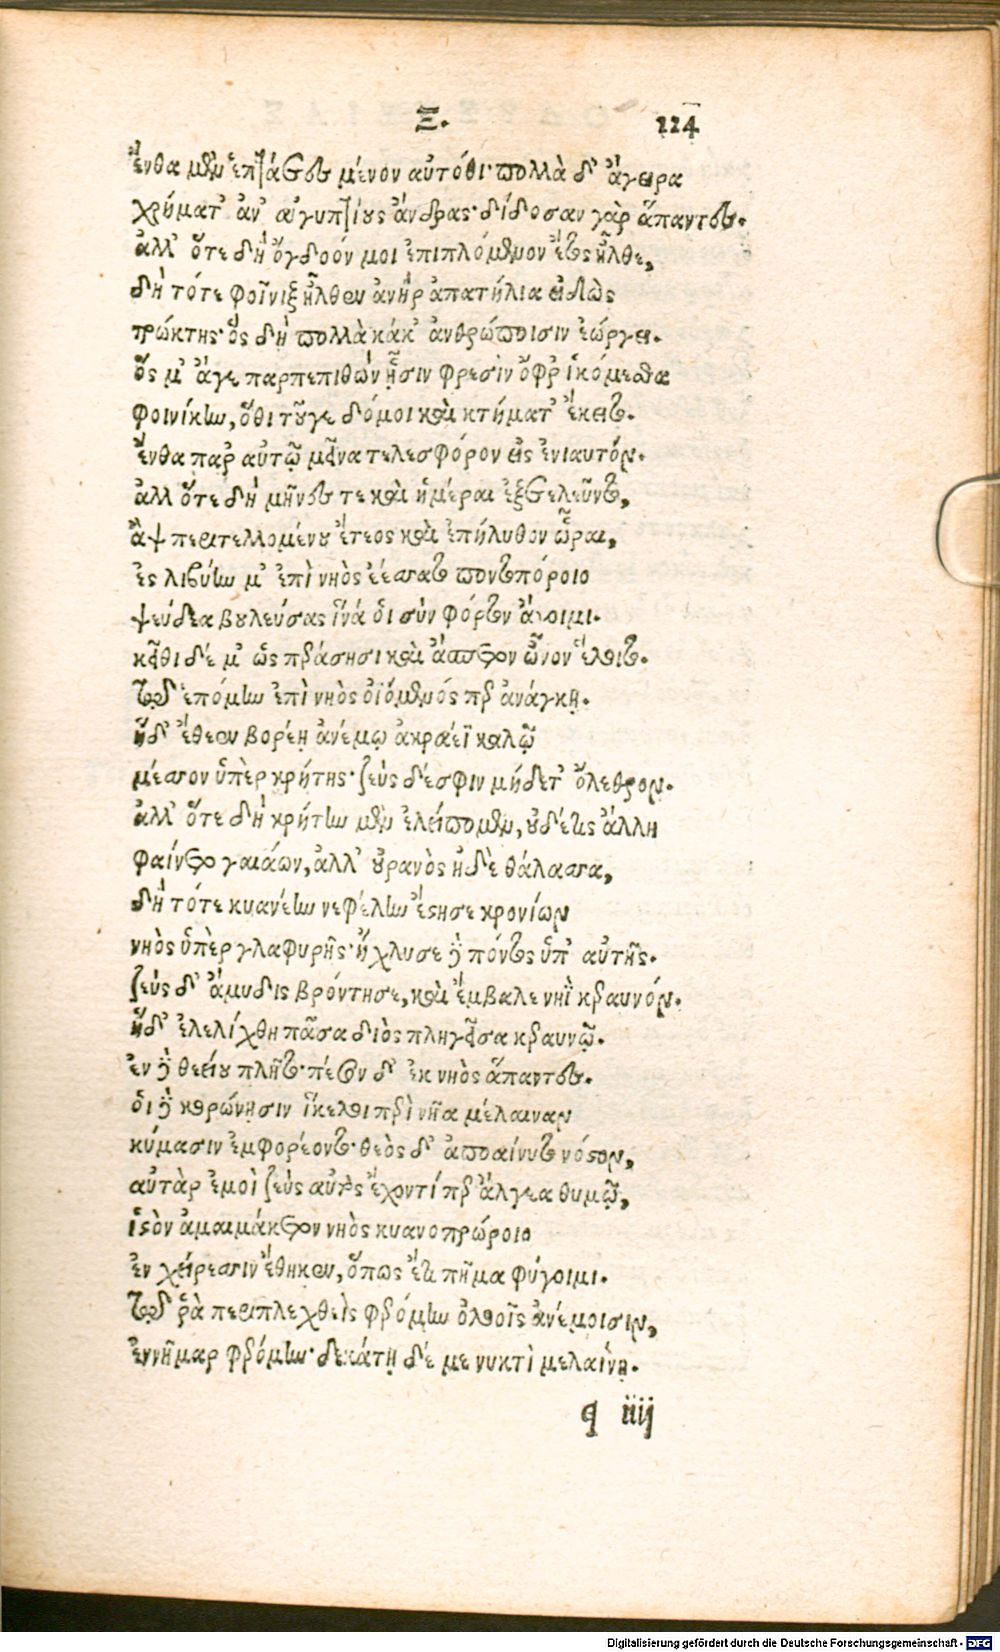 Ξ. 114
ἔνθα μὲν ἑπτάετες μένον αὐτόθι· πολλὰ δ' ἄγειρα
χρήματ' ἀν' αἰγυπτίους ἄνδρας· δίδοσαν γὰρ ἅπαντες.
ἀλλ' ὅτε δὴ ὄγδοόν μοι ἐπιπλόμενον ἔτος ἦλθε,
δὴ τότε φοῖνιξ ἦλθεν ἀνὴρ ἀπατήλια εἰδὼς
τρώκτης· ὃς δὴ πολλὰ κάκ' ἀνθρώποισιν ἐώργει.
ὅς μ' ἄγε παρπεπιθὼν ᾗσιν φρεσὶν ὄφρ' ἱκόμεσθα
φοινίκην, ὅθι τοῦγε δόμοι καὶ κτήματ' ἔκειτο.
ἔνθα παρ' αὐτῷ μεῖνα τελεσφόρον εἰς ἐνιαυτόν.
ἀλλ' ὅτε δὴ μῆνές τε καὶ ἡμέραι ἐξετελεῦντο,
ἂψ περιτελλομένου ἔτεος καὶ ἐπήλυθον ὧραι,
ἐς λιβύην μ' ἐπὶ νηὸς ἐέσσατο ποντοπόροιο
ψεύδεα βουλεύσας ἵνά οἱ σὺν φόρτον ἄγοιμι.
κεῖθι δέ μ' ὡς περάσησι καὶ ἄσπετον ὦνον ἕλοιτο.
τῷ δ' ἑπόμην ἐπὶ νηὸς ὀϊόμενός περ ἀνάγκῃ.
ἡ δ' ἔθεεν βορέῃ ἀνέμῳ ἀκραέϊ καλῷ
μέσσον ὑπὲρ κρήτης· ζεὺς δέ σφιν μήδετ' ὄλεθρον.
ἀλλ' ὅτε δὴ κρήτην μὲν ἐλείπομεν, οὐδέ τις ἄλλη
φαίνετο γαιάων, ἀλλ' οὐρανὸς ἠδὲ θάλασσα,
δὴ τότε κυανέην νεφέλην ἔστησε κρονίων
νηὸς ὑπὲρ γλαφυρῆς· ἤχλυσε δὲ πόντος ὑπ' αὐτῆς.
ζεὺς δ' ἄμυδις βρόντησε, καὶ ἔμβαλε νηῒ κεραυνόν.
ἡ δ' ἐλελίχθη πᾶσα διὸς πληγεῖσα κεραυνῷ.
ἐν δὲ θεείου πλῆτο· πέσον δ' ἐκ νηὸς ἅπαντες.
οἱ δὲ κορώνῃσιν ἴκελοι περὶ νῆα μέλαιναν
κύμασιν ἐμφορέοντο· θεὸς δ' ἀποαίνυτο νόστον,
αὐτὰρ ἐμοὶ ζεὺς αὐτὸς ἔχοντί περ ἄλγεα θυμῷ,
ἱστὸν ἀμαιμάκετον νηὸς κυανοπρώροιο
ἐν χείρεσσιν ἔθηκεν, ὅπως ἔτι πῆμα φύγοιμι.
τῷ δ' ῥὰ περιπλεχθεὶς φερόμην ὀλοοῖς ἀνέμοισιν,
ἐννῆμαρ φερόμην· δεκάτῃ δέ με νυκτὶ μελαίνῃ.
q iiij
Digitalisierung gefördert durch die Deutsche Forschungsgemeinschaft - DFG